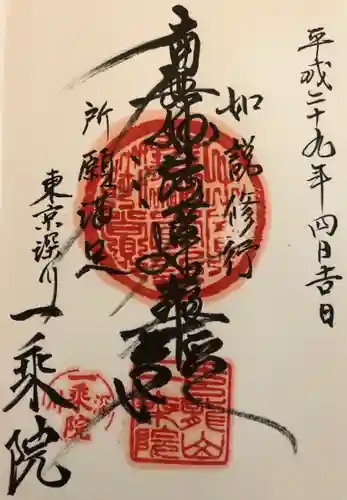 平成二十九年四月吉日
如説修行
南無妙法蓮華経
所願満足
東京深川
一乗院